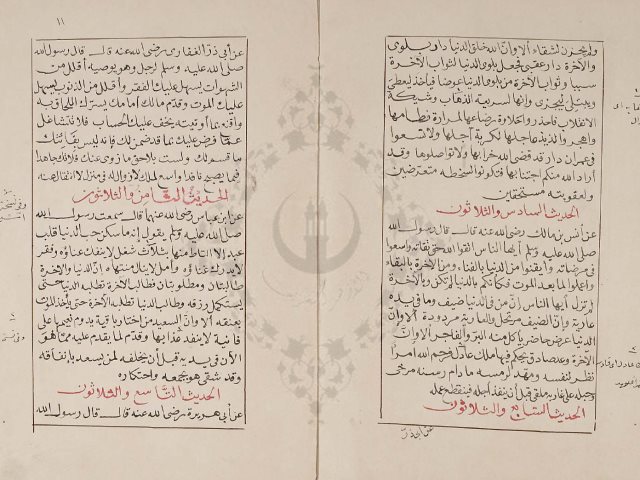 ولم يحزن لشقاء ألا وانّ الله خلق الدنيا دار بلوى
والآخرة دار عقبى فجعل بلوى الدنيا لثواب الآخرة
سببا وثواب الآخرة من بلوى الدنيا عوضا فيأخذ ليعطى
ويبتلى ليجزى وإنها لسريعة الذهاب وشيكة
الانقلاب فاحذروا حلاوة رضاعها لمرارة فطامها
واهجروا لذيذ عاجلها لكربة آجلها ولا تسعوا
فى عمران دار قد قضى الله خرابها ولا تواصلوها وقد
أراد الله منكم اجتنابها فتكونوا لسخطه متعرضين
ولعقوبته مستحقين
الحديث السادس والثلاثون
عن أنس بن مالك رضى الله عنه قال قال رسول الله
صلى الله عليه وسلم أيها الناس اتقوا الله حق تقاته واسعوا
فى مرضاته وأيقنوا من الدنيا بالفناء ومن الآخرة بالبقاء
واعملوا لما بعد الموت فكأنكم بالدنيا لم تكن وبالآخرة
لم تزل أيها الناس إنّ من فى الدنيا ضيف وما فى يده
عارية وإنّ الضيف مرتحل والعارية مردودة ألا وانّ
الدنيا عرض حاضر يأكل منه البرّ والفاجر ألا وانّ
الآخرة وعد صادق يحكم فيها ملك عادل فرحم الله امرأ
نظر لنفسه ومهد لرمسه ما دام رسنه مرخى
وحبله على غاربه ملقى قبل أن ينفذ أجله فينقطع عمله
الحديث السابع والثلاثون
عن أبى ذرّ
١١
عن أبى ذرّ الغفارى رضى الله عنه قال قال رسول الله
صلى الله عليه وسلم لرجل وهو يوصيه أقلل من
الشهوات يسهل عليك الفقر وأقلل من الذنوب يسهل
عليك الموت وقدّم مالك أمامك يسرّك اللحاق به
واقنع بما أوتيته يخف عليك الحساب فلا تتشاغل
عمّا فرض عليك بما قد ضمن لك فإنه ليس بفائتك
ما قسم لك ولست بلاحق ما زوى عنك فلا تك جاهدا
فيما يصبح نافدا واسع لملك لا زوال له فى منزل لا انتقال عنه
الحديث الثامن والثلاثون
عن ابن عباس رضى الله عنهما قال سمعت رسول الله
صلى الله عليه وسلم يقول إنه ما سكن حب الدنيا قلب
عبد إلا التاط منها بثلاث شغل لا ينفك عناؤه وفقر
لا يدرك غناؤه وأمل لا ينال منتهاه إنّ الدنيا والآخرة
طالبتان ومطلوبتان فطالب الآخرة تطلبه الدنيا حتى
يستكمل رزقه وطالب الدنيا تطلبه الآخرة حتى يأخذ الموت
بعنقه ألا وانّ السعيد من اختار باقية يدوم نعيمها على
فانية لا ينفد عذابها وقدّم لما يقدم عليه ممّا هو
الآن فى يديه قبل أن يخلفه لمن يسعد بإنفاقه
وقد شقى هو بجمعه واحتكاره
الحديث التاسع والثلاثون
عن أبى هريرة رضى الله عنه قال قال رسول الله